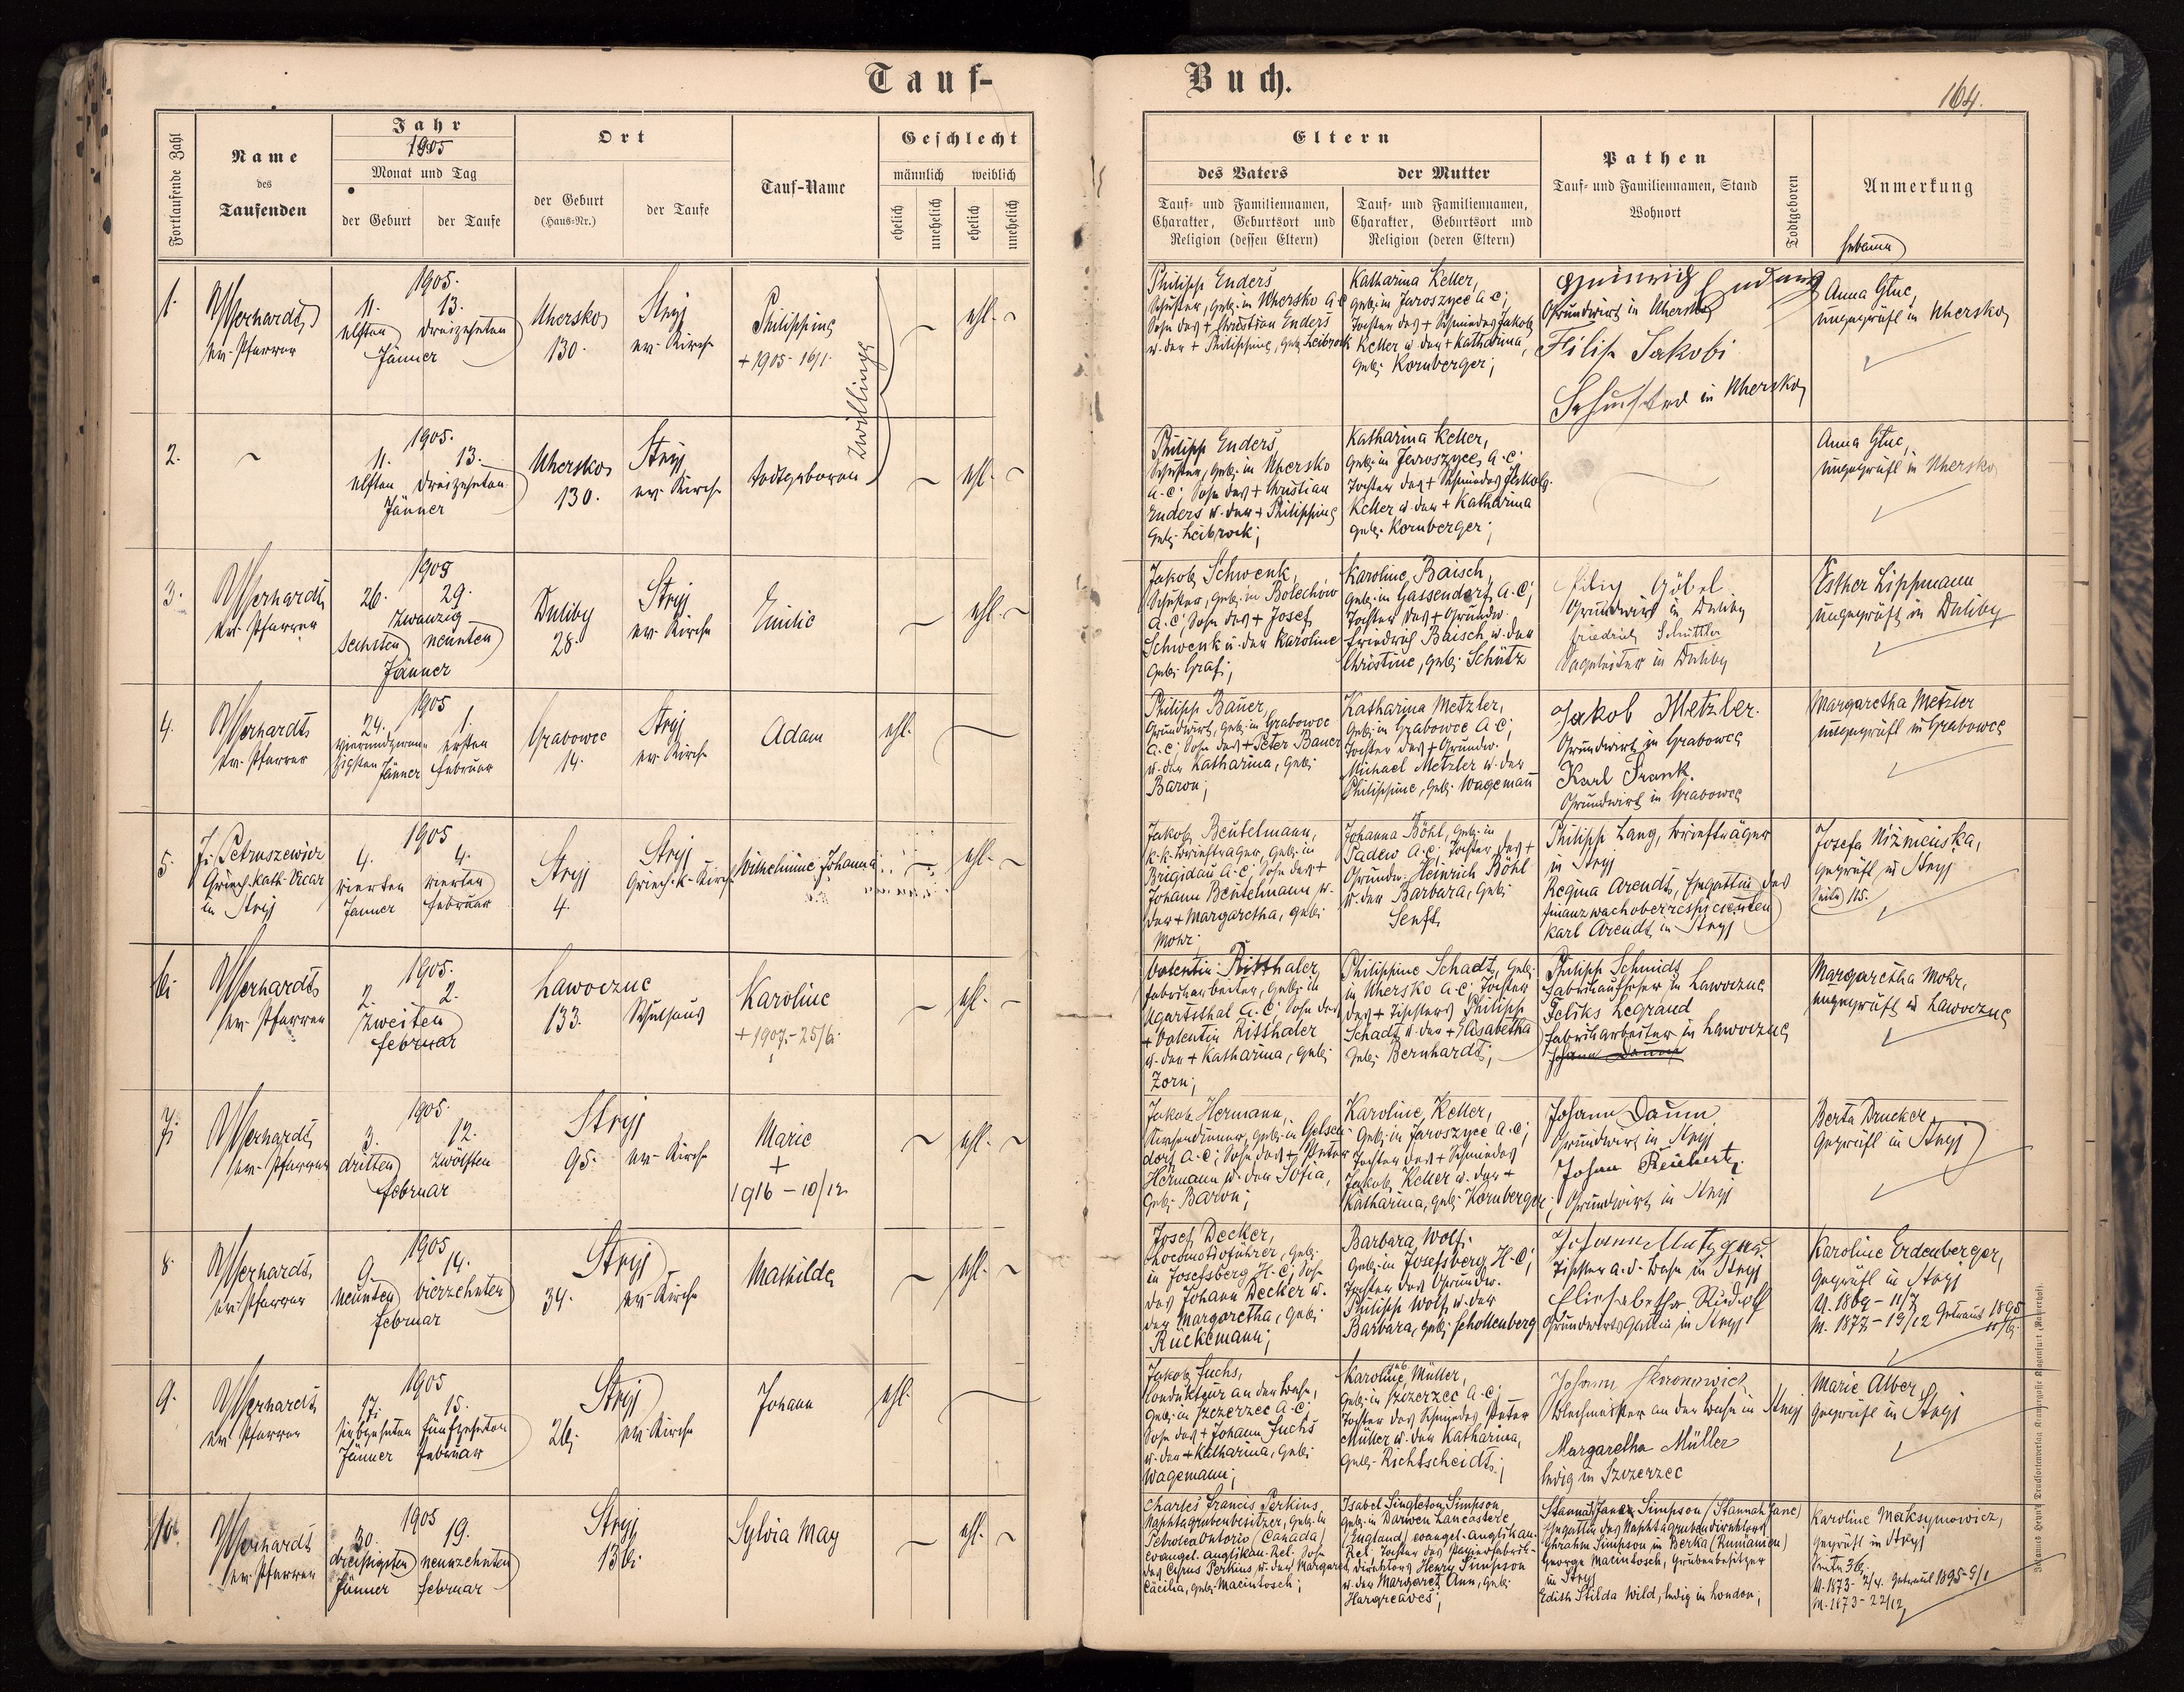 Tauf-
Buch.
164.
Fortlaufende Zahl
Name
des
Taufenden
Jahr
1905
Monat und Tag
der Geburt
der Taufe
Ort
der Geburt
(Haus-Nr.)
der Taufe
Tauf-Name
Geschlecht
männlich weiblich
ehelich
unehelich
ehelich
unehelich
Eltern
des Vaters
der Mutter
Tauf- und Familiennamen,
Charakter, Geburtsort und
Religion (dessen Eltern)
Tauf- und Familiennamen,
Charakter, Geburtsort und
Religion (deren Eltern)
Pathen
Tauf- und Familiennamen, Stand
Wohnort
Todtgeboren
Anmerkung
Hebamme
1.
ev. Pfarrer
1905.
11. 13.
elften dreizehnten
Jänner
Uhersko
130.
Stryj
ev. Kirche
Philippine
+ 1905 - 16/1
Zwillinge
ehl.
Philipp Enders
Schuster, geb. in Uhersko A.C.
Sohn des + Christian Enders
u. der + Philippine, geb. Leibrock
Katharina Keller,
geb. in Jaroszyce A.C;
Tochter des + Schmiedes Jakob
Keller u. der + Katharina,
geb. Kornberger;
Heinrich
Grundwirt in Uhersko
Filip Jakobi
in Uhersko
Anna Gluc,
ungeprüft in Uhersko
2.
1905.
11. 13.
elften dreizehnten
Jänner
Uhersko
130.
Stryj
ev. Kirche
todtgeboren
ehl.
Philipp Enders
Schuster, geb. in Uhersko
A.C; Sohn des + Christian
Enders u. der + Philippine
geb. Leibrock;
Katharina Keller,
geb. in Jaroszyce, A.C.
Tochter des + Schmiedes Jakob
Keller u. der + Katharina
geb. Kornberger;
Anna Gluc,
ungeprüft in Uhersko
3.
ev. Pfarrer
1905
26. 29.
zwanzig
sechsten neunten
Jänner
Duliby
28.
Stryj
ev. Kirche
Emilie
ehl.
Jakob Schwenk,
Schuster, geb. in Bolechów
A.C; Sohn des + Josef
Schwenk u. der Karoline
geb. Graf;
Karoline Baisch,
geb. in Gassendorf A.C;
Tochter des + Grundw.
Friedrich Baisch u. der
Christine, geb. Schütz
Filip Göbel
Grundwirt in Duliby
Friedrich Schüttler
in Duliby
Esther Lippmann
ungeprüft in Duliby
4.
ev. Pfarrer
1905
24. 1.
vierundzwan- ersten
zigsten Jänner Februar
Grabowce
14.
Stryj
ev. Kirche
Adam
ehl.
Philipp Bauer,
Grundwirt, geb. in Grabowce
A.C; Sohn des + Peter Bauer
u. der Katharina, geb.
Baron;
Katharina Metzler,
geb. in Grabowce A.C;
Tochter des + Grundw.
Michael Metzler u. der
Philippine, geb. Wagemann
Jakob Metzler.
Grundwirt in Grabowce
Karl Frank.
Grundwirt in Grabowce
Margaretha Metzler
ungeprüft in Grabowce
5.
J. Petruszewicz
Griech. kath. Vicar
in Stryj
1905
4. 4.
vierten vierten
Jänner Februar
Stryj
4.
Stryj
Griech. k. Kirche
Wilhelmine Johanna
ehl.
Jakob Beutelmann,
k. k. Briefträger, geb. in
Brigidau A.C; Sohn des +
Johann Beutelmann u.
der + Margaretha, geb.
Mohr;
Johanna Böhl, geb. in
Padew A.C; Tochter des +
Grundw. Heinrich Böhl
u. der Barbara, geb.
Senft
Philipp Lang, Briefträger
in Stryj
Regina Arendt, Ehgattin des
Finanzwachoberrespicienten
Karl Arendt in Stryj
Josefa Niżnieńska,
geprüft in Stryj
115.
6.
ev. Pfarrer
1905.
2. 2.
zweiten
Februar
Lawoczne
133.
Schulhaus
Karoline
+ 1907 - 25/6.
ehl.
Valentin Ritthaler
Fabriksarbeiter, geb. in
Ugartsthal A.C; Sohn des
+ Valentin Ritthaler
u. der + Katharina, geb.
Zorn;
Philippine Schadt, geb.
in Uhersko A.C; Tochter
des + Tischlers Philipp
Schadt u. der + Elisabetha
geb. Bernhardt;
Philipp Schmidt
Fabrikaufseher in Lawoczne
Feliks Legrand
Fabrikarbeiter in Lawoczne
Margaretha Mohr,
ungeprüft in Lawoczne
7.
ev. Pfarrer
1905.
3. 12.
dritten zwölften
Februar
Stryj
95. ev. Kirche
Marie
+
1916 - 10/12
ehl.
Jakob Hermann,
Kirchendiener, geb. in Gelsen-
dorf A.C; Sohn des + Peter
Hermann u. der Sofia,
geb. Baron;
Karoline Keller,
geb. in Jaroszyce A.C;
Tochter des + Schmiedes
Jakob Keller u. der +
Katharina, geb. Kornberger;
Johann Daum
Grundwirt in Stryj
Johann Reichert
Grundwirt in Stryj
Berta Drucker,
geprüft in Stryj
8.
ev. Pfarrer
1905
9. 14.
neunten vierzehnten
Februar
Stryj
34. ev. Kirche
Mathilde
ehl.
Josef Decker,
Locomotivführer, geb.
in Josefsberg H.C; Sohn
des Johann Decker u.
der Margaretha, geb.
Rückemann;
Barbara Wolf,
geb. in Josefsberg H.C;
Tochter des Grundw.
Philipp Wolf u. der
Barbara, geb. Schollenberg
Johann
Tischler a. d. Bahn in Stryj
Elisabetha
Grundwirts Gattin in Stryj
Karoline Erdenberger,
geprüft in Stryj
V. 1869 - 11/7
M. 1877 - 19/12 Getraut 1895
9.
ev. Pfarrer
1905
17. 15.
siebzehnten fünfzehnten
Jänner Februar
Stryj
26. ev. Kirche
Johann
ehl.
Jakob Fuchs,
Kondukteur an der Bahn,
geb. in Szczerzec A.C;
Sohn des + Johann Fuchs
u. der + Katharina, geb.
Wagemann;
Karoline Müller,
geb. in Szczerzec A.C;
Tochter des Schmiedes Peter
Müller u. der Katharina,
geb. Richtscheidt;
Johann
an der Bahn in Stryj
Margaretha Müller
ledig in Szczerzec
Marie Alber,
geprüft in Stryj
10.
ev. Pfarrer
1905
30. 19.
dreißigsten neunzehnten
Jänner Februar
Stryj
136.
Sylvia May
ehl.
Charles Francis Perkins,
Naphtagrubenbesitzer, geb. in
Petrolea Ontorio (Canada)
evangel. anglikan. Rel. Sohn
des Cyrus Perkins u. der Margaret
Cäcilia, geb. Macintosch;
Isabel Singleton Simpson,
geb. in Darwen Lancastere
(England) evangel. Anglikan.
Rel. Tochter des Papierfabrik-
direktors Henry Simpson
u. der Margaret Ann, geb.
Hargreaves;
Simpson (Stannah Jane)
Ehgattin des Naphtagrubendirektors
Simpson in Berka (Rumänien)
George Macintosch, Grubenbesitzer
in Stryj
Edith Stilda Wild, ledig in London;
Karoline Maksymowicz,
geprüft in Stryj
V. 1873 - 2/4. Getraut 1895 - 9/1
M. 1873 - 22/12
Johannes Heyn's Drucksortenverlag